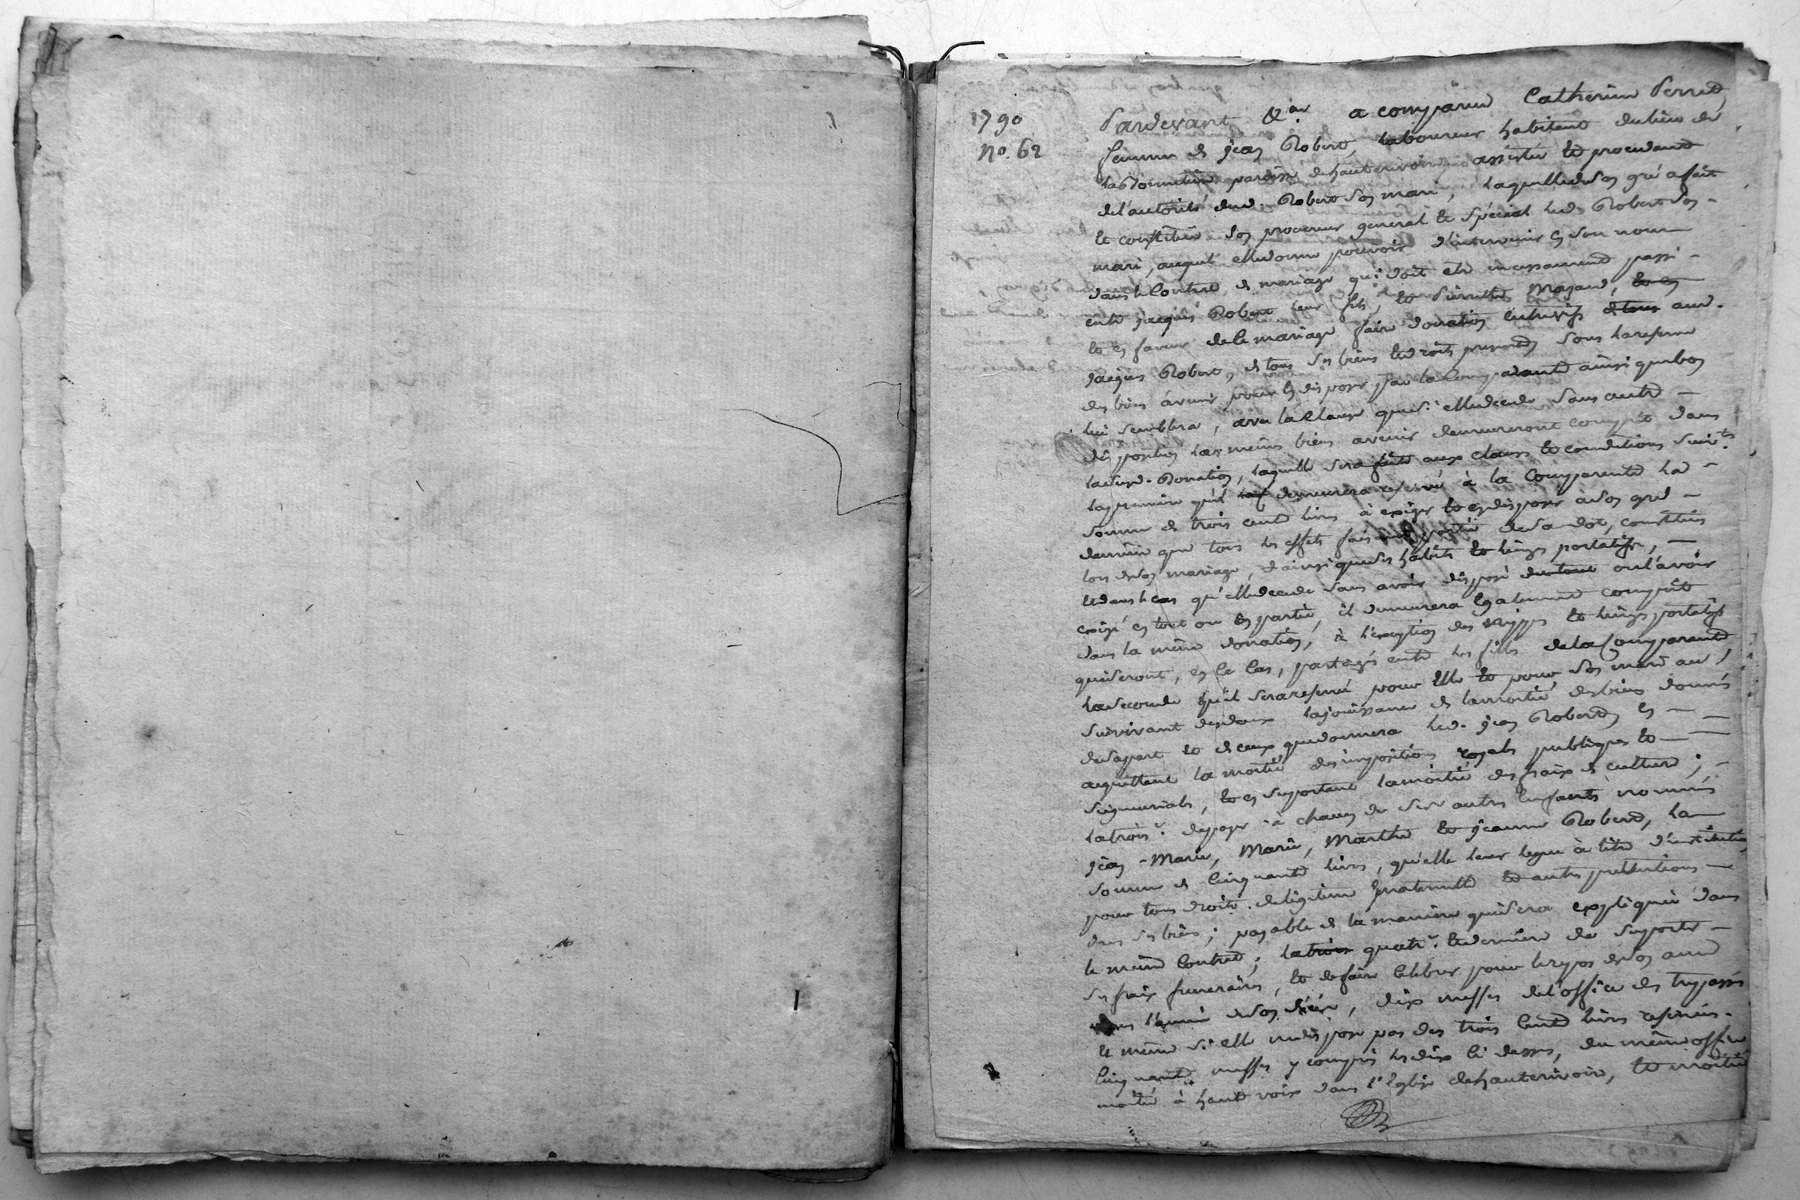 1790
No. 62
Pardevant &ª. a comparu Catherine Perret
femme de jean Robert, laboureur habitant du lieu de
paroisse de hauterivoire, assistée et procedante
de l'autorité dud. Robert son mari, laquelle de son gré a fait
et constitué son procureur general et special led. Robert son
mari, auquel elle donne pouvoir d'intervenir en son nom
dans le Contrat de mariage qui doit etre incessamment passé
entre jacques Robert leur fils et Pierrette Magaud, et en
et en faveur de ce mariage faire donation entrevifs de tous aud.
jacques Robert, de tous ses biens et droits presents, sous la reserve
des biens avenir pour en disposer par la comparante ainsi que bon
lui semblera, avec la clause que si elle decede sans autre
disposition les memes biens avenir demeureront compris dans
lad. donation, laquelle sera faite aux clauses et conditions suiv.tes
la premiere qu'il demeurera reservé à la Comparante la
somme de trois cent livres à exiger et en disposer a son gré
de meme que tous les effets faisant partie de sa dot, constitués
lors de son mariage, et ainsi que ses habits et linges portatifs,
et dans le cas qu'elle decede sans avoir disposé du tout ou l'avoir
exigé en tout ou en partie, il demeurera egalement compris
dans la meme donation, à l'exception des nippes et linges portatifs
qui seront, en ce cas, partagés entre les filles de la Comparante
la seconde qu'il sera reservé pour elle et pour son mari au
survivant des deux la jouissance de la moitié des biens donnés
de sa part et de ceux que donnera led. jean Robert, en
acquittant la moitié des impositions royales publiques et
seigneuriales, et en suportant la moitié des fraix de culture;
la trois.e de payer à chacun de ses autres Enfants nommés
jean-Marie, Marie, Marthe et jeanne Robert, la
somme de Cinquante livres, qu'elle leur legue à titre d'institution
pour tous droits de legitime maternelle et autres pretentions
dans ses biens; payable de la maniere qui sera expliquée dans
le meme Contrat; la trois quatr.e et derniere de suporter
ses fraix funeraires, et de faire celebrer pour le repos de son ame
dans l'année de son décès, dix messes de l'office des trepassés
et meme si elle ne dispose pas des trois Cent livres reservées
Cinquante messes y compris les dix ci dessus, du meme office
moitié à haute voix dans l'Eglise de hauterivoire, et moitié